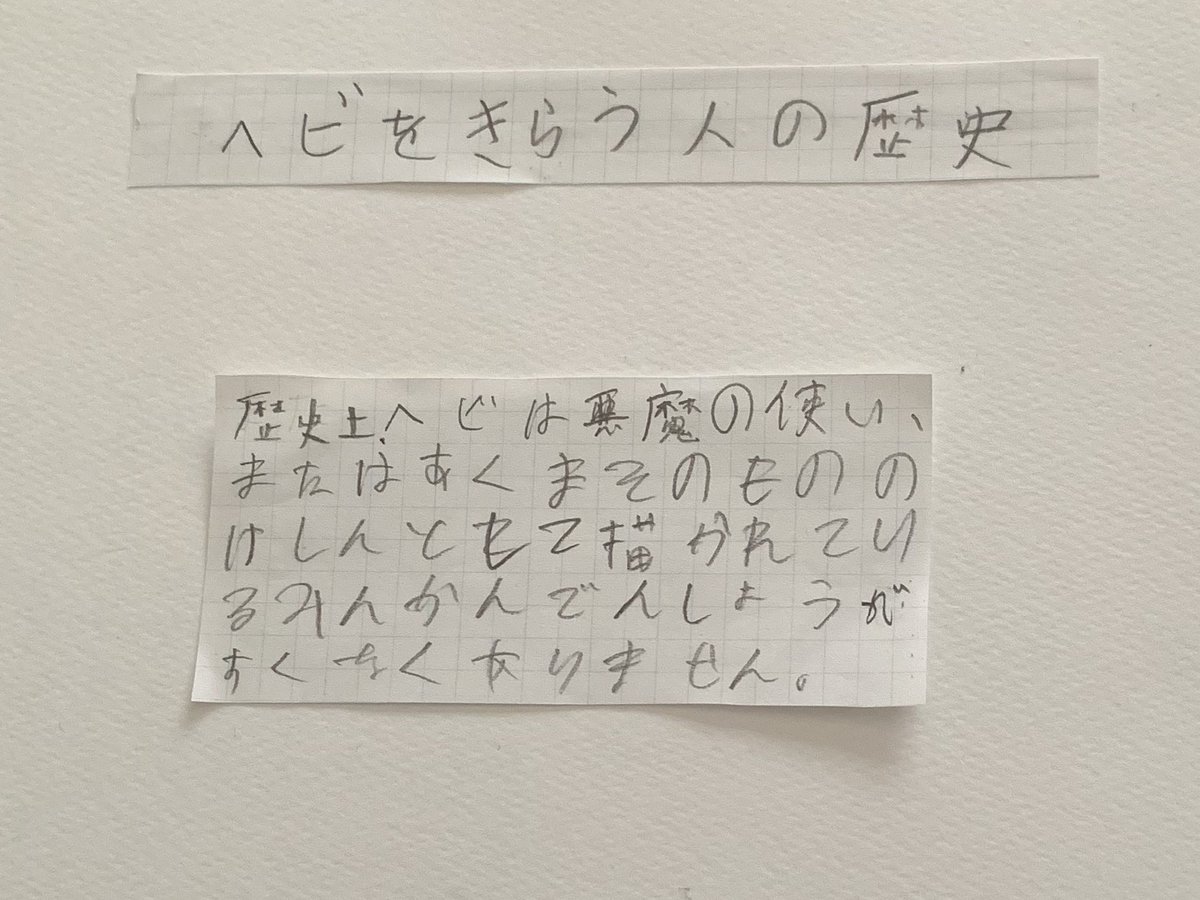 ヘビをきらう人の歴史
歴史上、ヘビは悪魔の使い、
またはあくまそのものの
けしんともて描かれてい
るみんかんでんしょうが
すくなくありません。